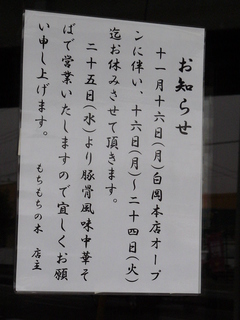 お知らせ
十一月十六日(月)白岡本店オープ
ンに伴い、十六日(月)~二十四日(火)
迄お休みさせて頂きます。
二十五日(水)より豚骨風味中華そ
ばで営業いたしますので宜しくお願
い申し上げます。
もちもちの木 店主